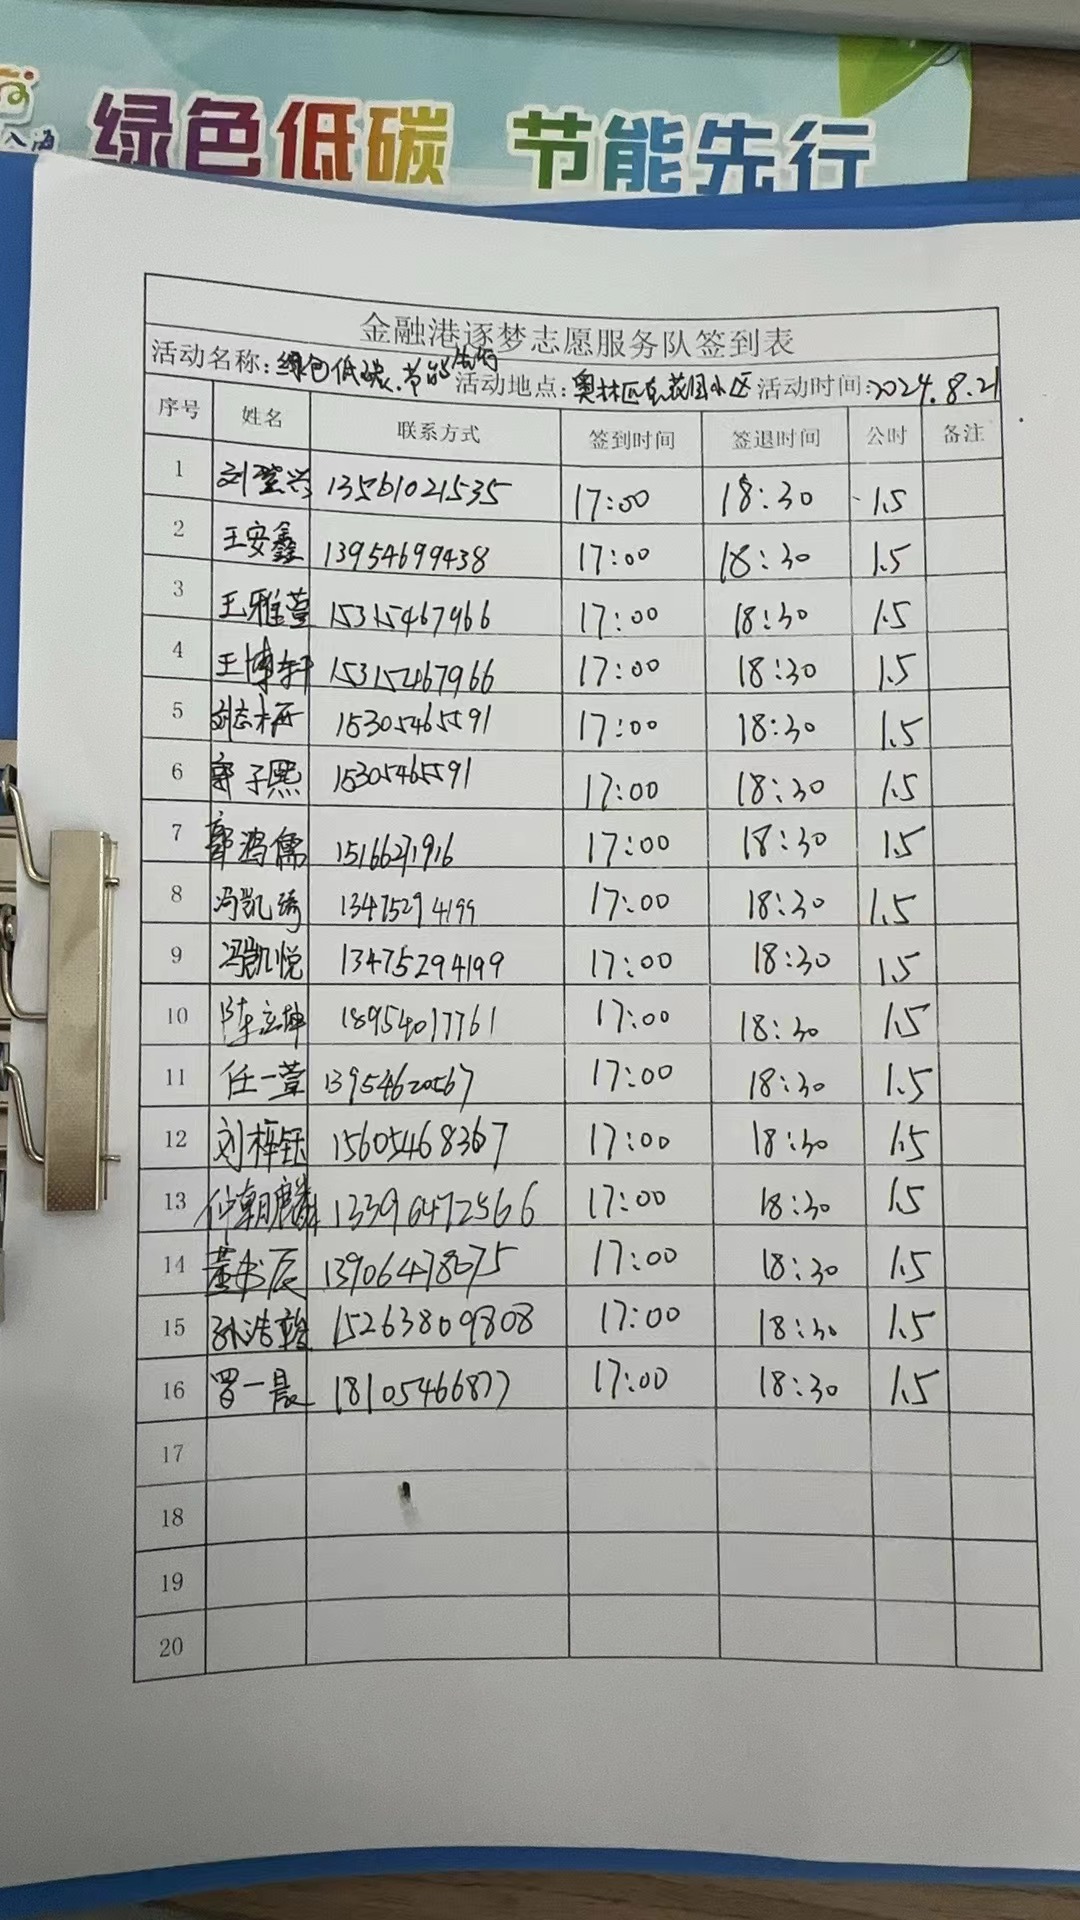 绿色低碳 节能先行
八海
金融港逐梦志愿服务队签到表
活动名称:绿色低碳.节能先行 活动地点:奥林匹克花园小区 活动时间:2024.8.21
序号 姓名 联系方式 签到时间 签退时间 公时 备注
1 刘登兴 13561021535 17:00 18:30 1.5
2 王安鑫 13954699438 17:00 18:30 1.5
3 王雅萱 15315467966 17:00 18:30 1.5
4 王博轩 15315467966 17:00 18:30 1.5
5 15305465591 17:00 18:30 1.5
6 郭子熙 15305465591 17:00 18:30 1.5
7 郭鸿儒 17:00 18:30 1.5
8 冯凯琦 13475294199 17:00 18:30 1.5
9 冯凯悦 13475294199 17:00 18:30 1.5
10 陈立坤 18954017761 17:00 18:30 1.5
11 任一萱 13954620567 17:00 18:30 1.5
12 刘梓钰 15605468367 17:00 18:30 1.5
13 仲朝麟 13396472566 17:00 18:30 1.5
14 董书辰 13906478675 17:00 18:30 1.5
15 孙浩翰 15263809808 17:00 18:30 1.5
16 罗一晨 18105466877 17:00 18:30 1.5
17
18
19
20